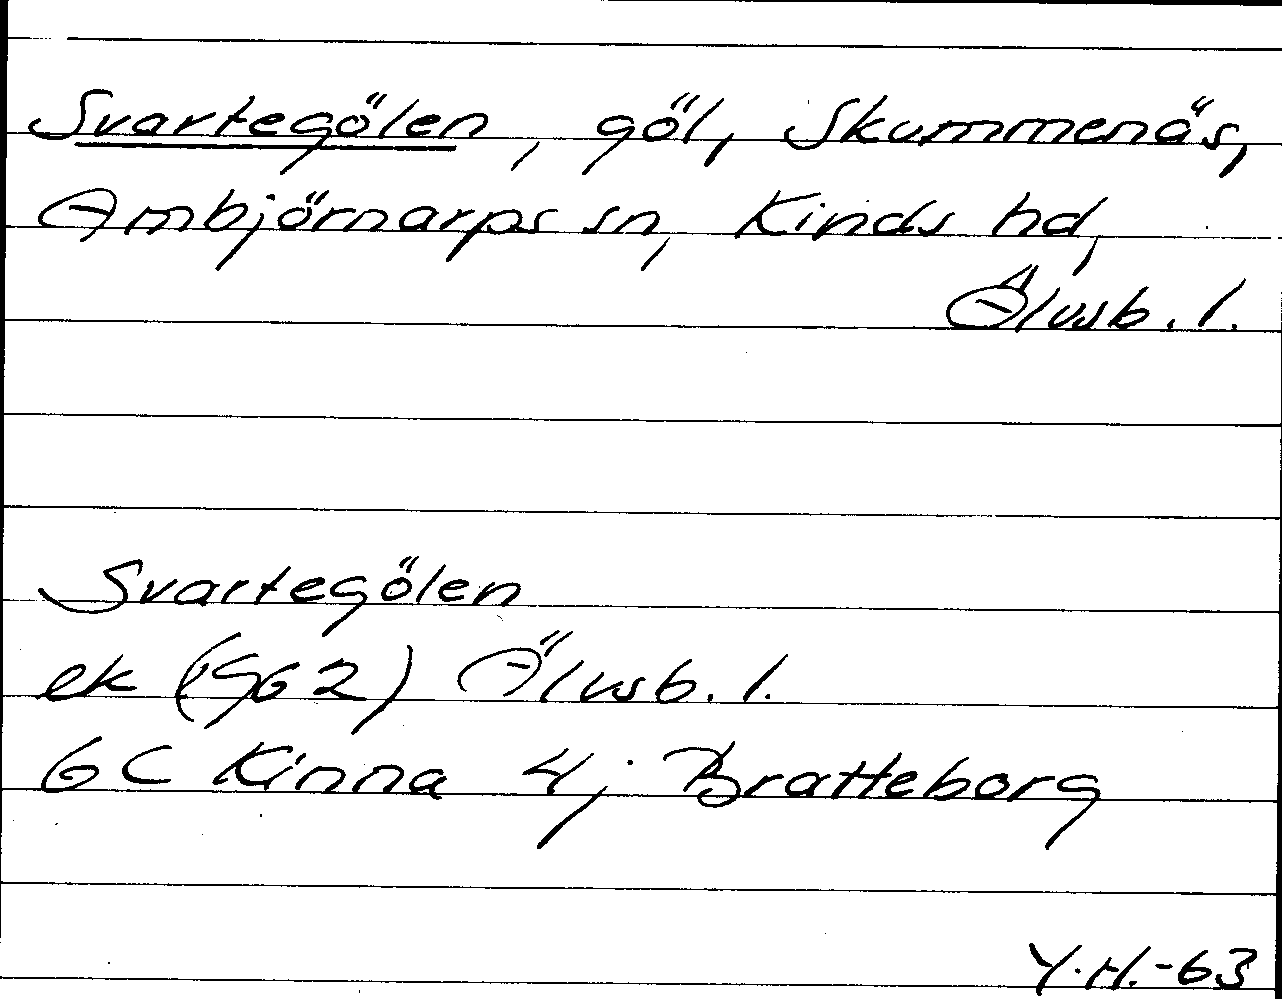 Svartegölen, göl, Skummenäs,
Ambjörnarps sn, Kinds hd,
Älvsb. l.
Svartegölen
ek (1962) Älvsb. l.
6C Kinna 4j Bratteborg
Y.H.-63